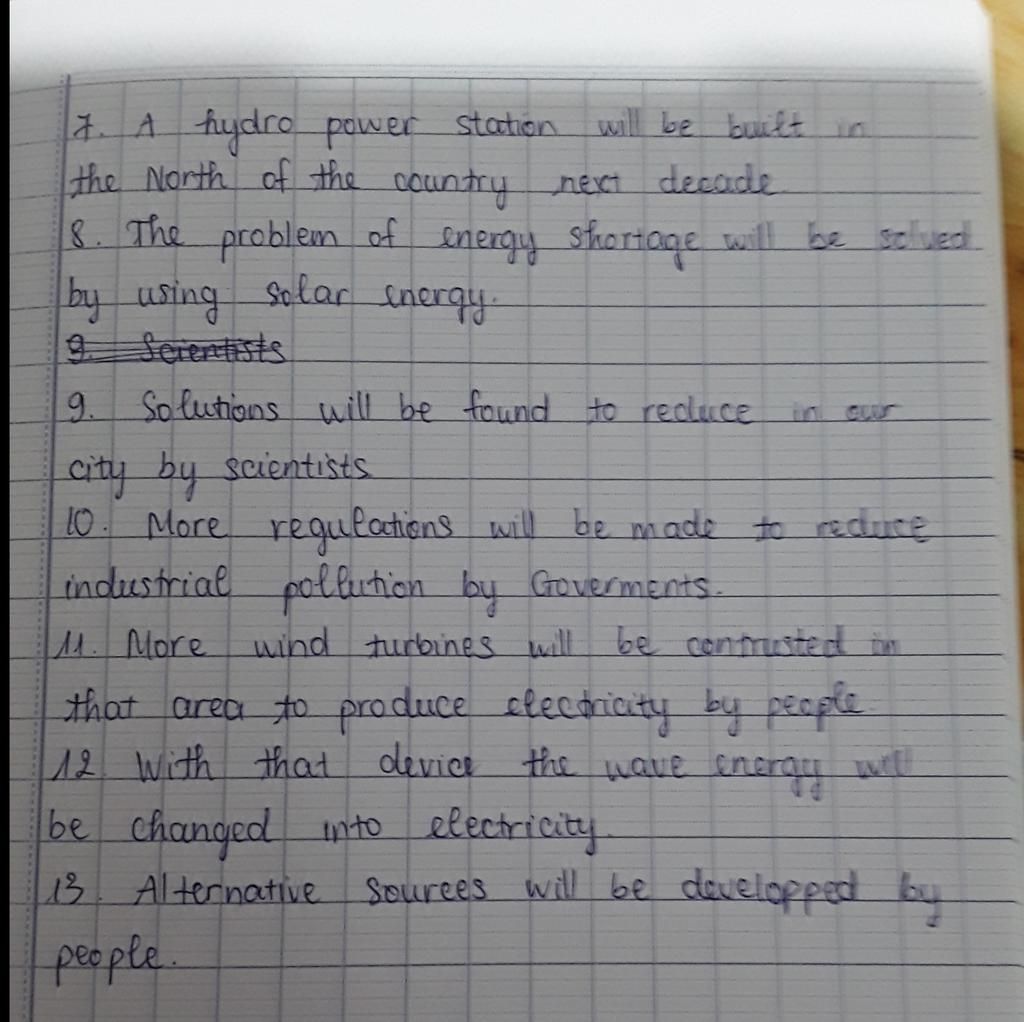 7. A hydro power station will be built in
the North of the country next decade
8. The problem of energy shortage will be solved
by using solar energy.
9. Scientists
9. Solutions will be found to reduce in our
city by scientists
10. More regulations will be made to reduce
industrial pollution by Goverments.
11. More wind turbines will be contrusted in
that area to produce electricity by people.
12 With that device the wave energy will
be changed into electricity.
13. Alternative sources will be developped by
people.